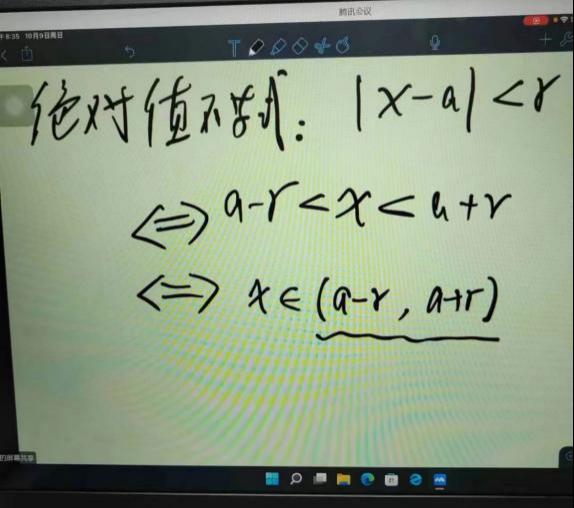 腾讯会议
午8:35 10月9日周日
绝对值不等式: |x-a|<r
⟺ a-r<x<a+r
⟺ x∈(a-r, a+r)
的屏幕共享